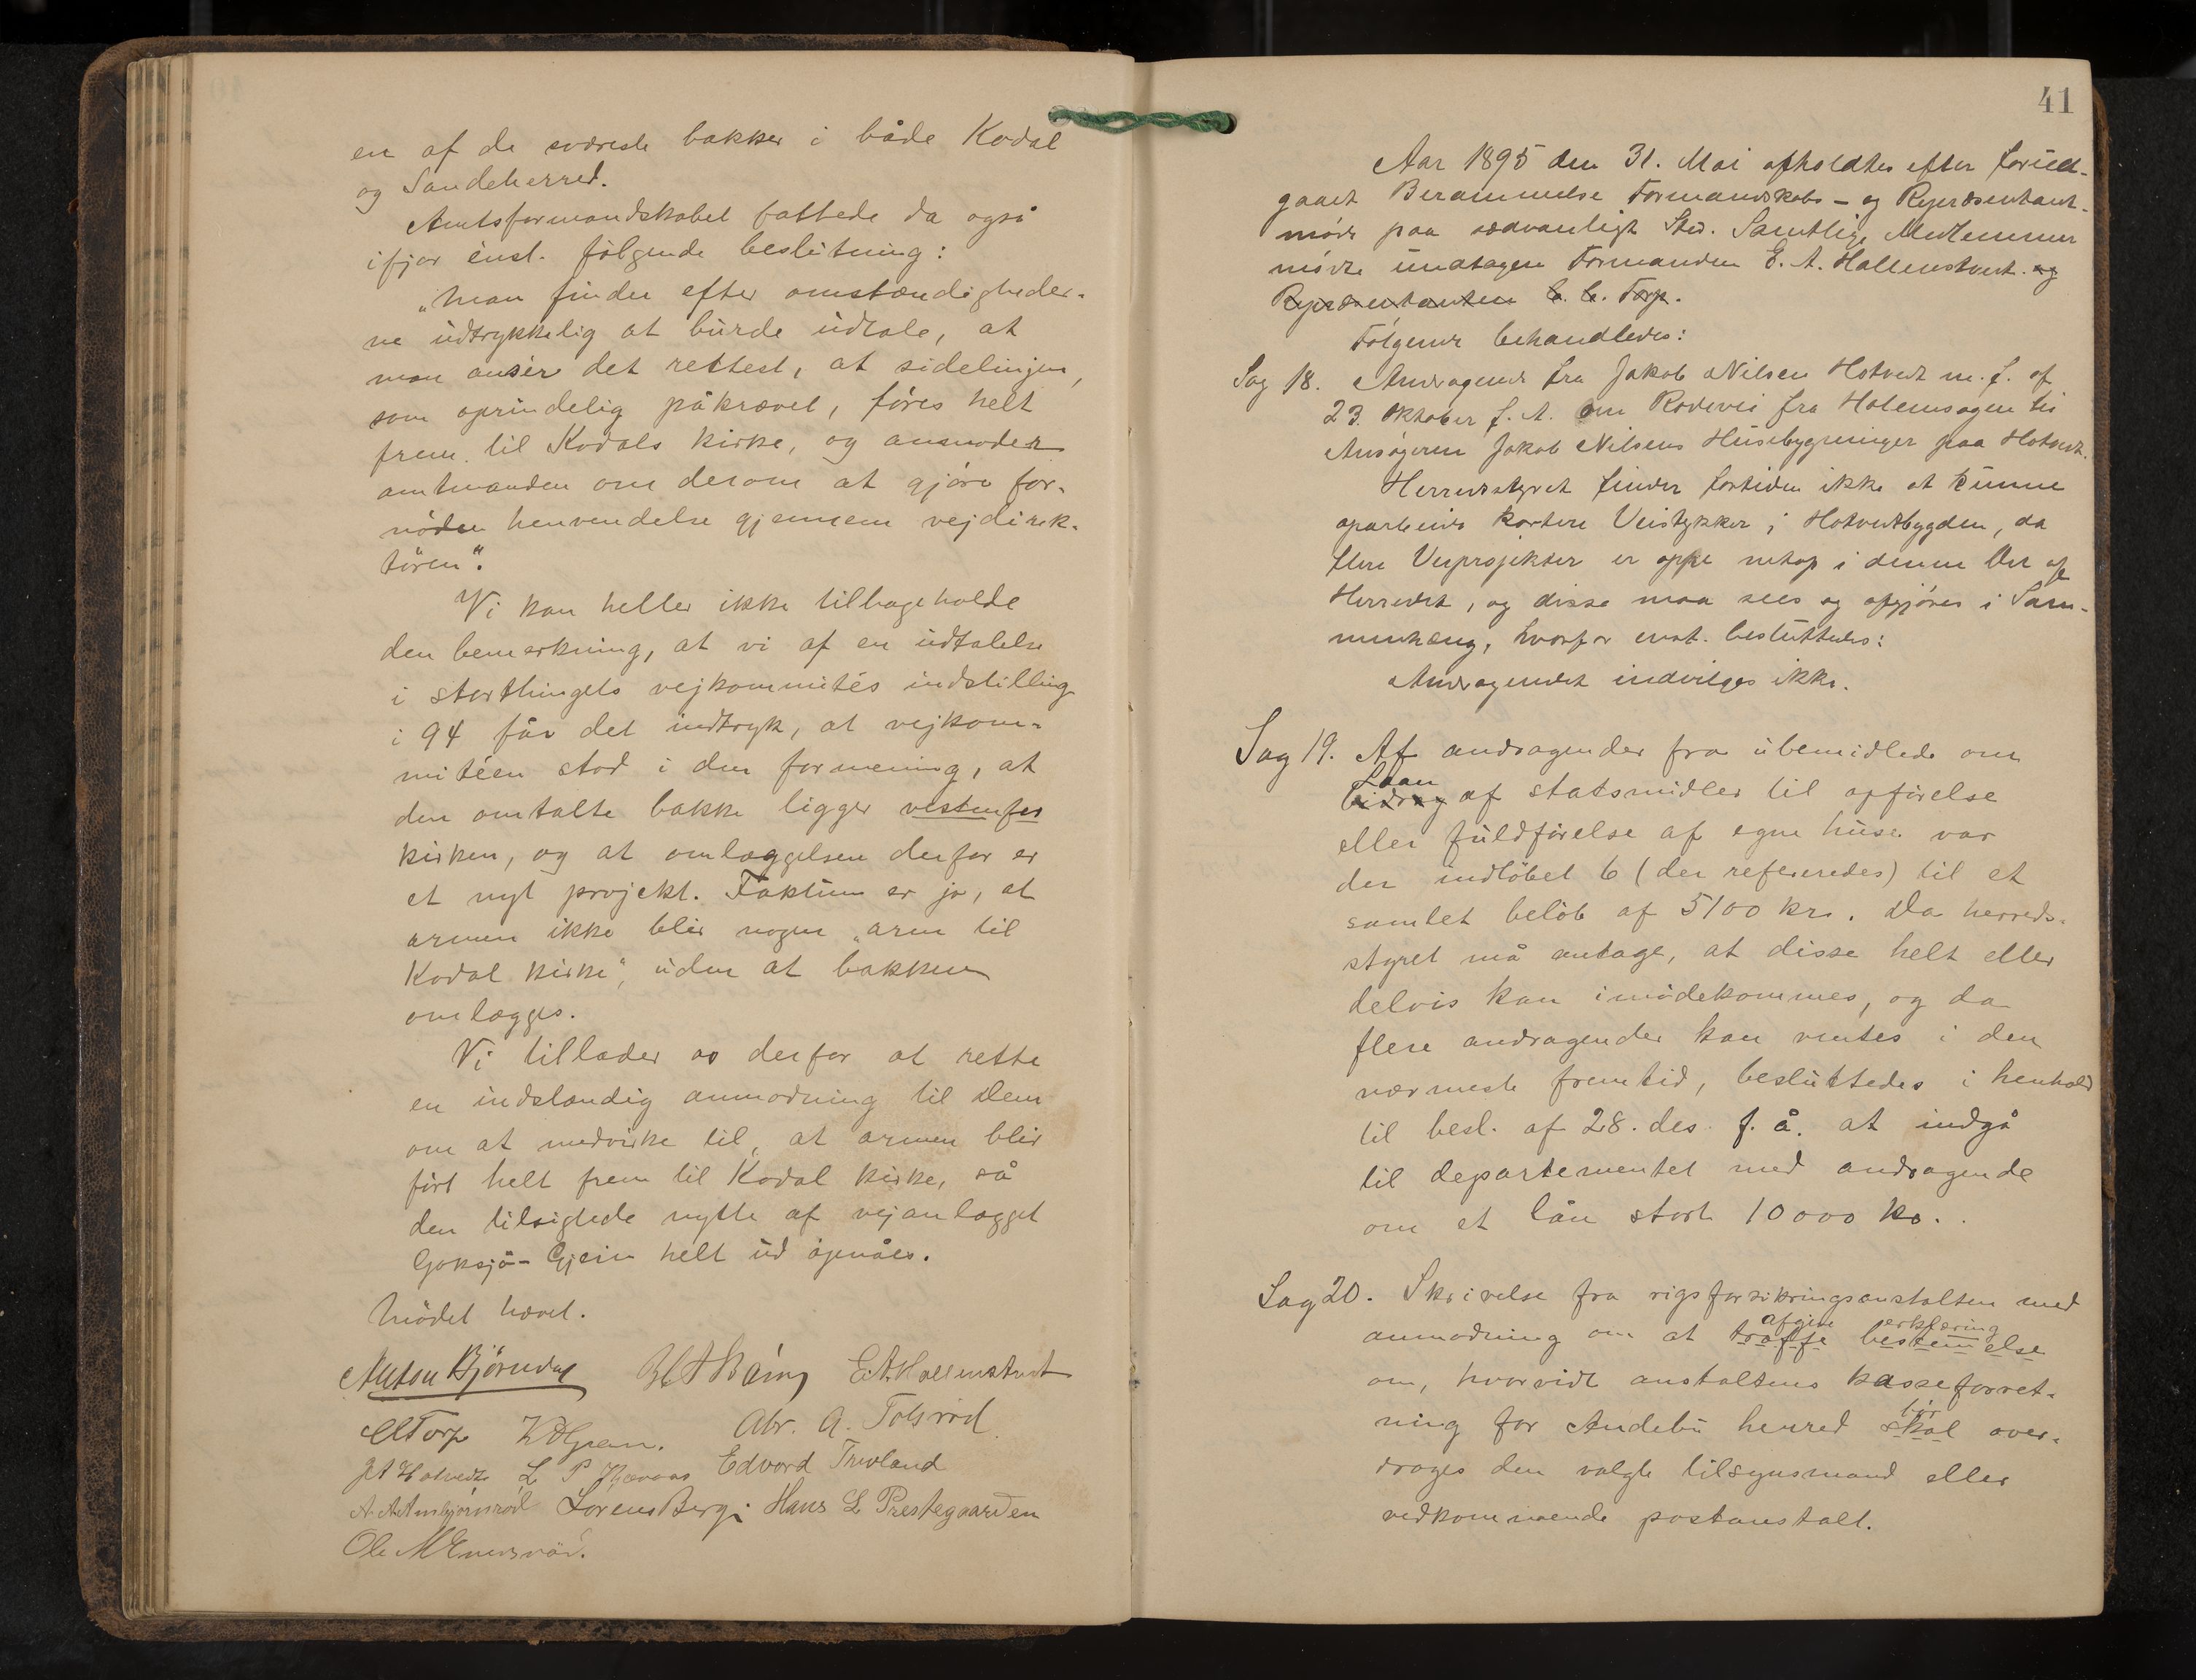 en af de sværeste bakker i både Kodal
og Sandeherred.
Amtsformandskabet fattede da også
ifjor enst. følgende beslutning:
"Man finder efter omstændigheder-
ne udtrykkelig at burde udtale, at
man anser det rettest, at sidelinjen,
som oprindelig påkrævet, føres helt
frem til Kodals kirke, og anmoder
amtmanden om derom at gjøre for-
nøden henvendelse gjennem vejdirek-
tøren".
Vi kan heller ikke tilbageholde
den bemerkning, at vi af en udtalelse
i storthingets vejkommités indstilling
i 94 får det indtryk, at vejkom-
mitéen stod i den formening, at
den omtalte bakke ligger vestenfor
kirken, og at omlæggelsen derfor er
et nyt projekt. Faktum er jo, at
armen ikke blir nogen "arm til
Kodal kirke", uden at bakken
omlægges.
Vi tillader os derfor at rette
en indstændig anmodning til Dem
om at medvirke til, at armen blir
ført helt frem til Kodal kirke, så
den tilsigtede nytte af vejanlægget
Goksjø-Gjein helt ud opnåes.
Mødet hævet.
Anton Bjørndal E. A. Hallenstvet
C C Torp Abr. A. Tolsrød
J A Hotvedt L P Edvard Trevland
A. A. Ambjørnrød Lorens Berg. Hans L Prestegaarden
Ole M Enersrød.
41
Aar 1895 den 31. Mai afholdtes efter forud-
gaaet Berammelse Formandskabs- og Repræsentant-
møde paa sædvanligt Sted. Samtlige Medlemmer
mødte undtagen Formanden E. A. Hallenstvet. og
Repræsentanten C. C. Torp.
Følgende behandledes:
Sag 18. Andragende fra Jakob Nilsen Hotvedt m. f. af
23. Oktober f. A. om Rodevei fra Holemsagen til
Ansøgeren Jakob Nilsens Husebygninger paa Hotvedt.
Herredsstyret finder fortiden ikke at kunne
oparbeide kortere Veistykker i Hotvedtbygden, da
flere Veiprosjekter er oppe netop i denne Del af
Herredet, og disse maa sees og afgjøres i Sam-
menhæng, hvorfor enst. besluttedes:
Andragendet indvilges ikke.
Sag 19. Af andragender fra ubemidlede om
Laan
bidrag af statsmidler til opførelse
eller fuldførelse af egne huse var
der indløbet 6 (der refereredes) til et
samlet beløb af 5100 kr. Da herreds-
styret må antage, at disse helt eller
delvis kan imødekommes, og da
flere andragender kan ventes i den
nærmeste fremtid, besluttedes i henhold
til besl. af 28. des. f. å. at indgå
til departementet med andragende
om et lån stort 10000 kr.
Sag 20. Skrivelse fra rigsforsikringsanstalten med
afgive erklæring
anmodning om at træffe bestemmelse
om, hvorvidt anstaltens kasseforret-
bør
ning for Andebu herred skal over-
drages den valgte tilsynsmand eller
vedkommende postanstalt.